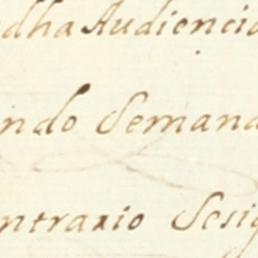 dha Audiencia
ndo Semana
ntrario Sesig